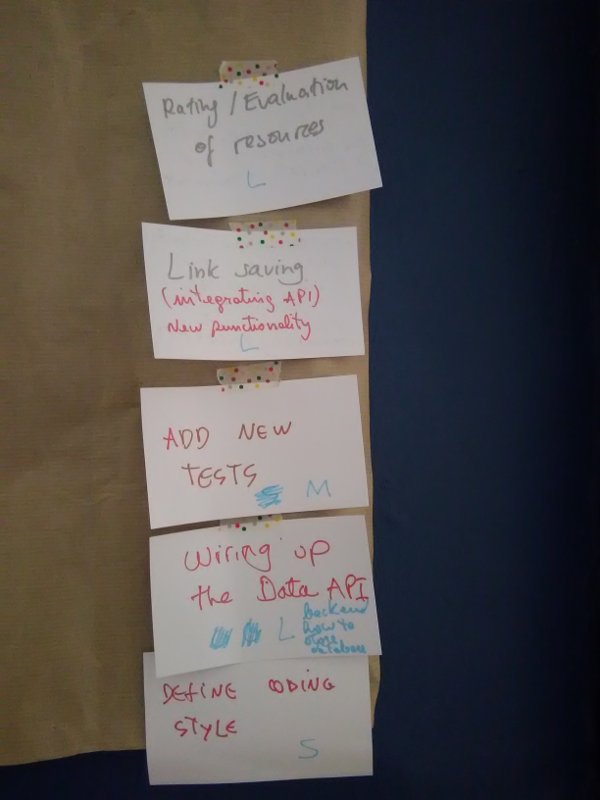 Rating / Evaluation
of resources
L
Link saving
(integrating API)
New functionality
L
ADD NEW
TESTS
M
Wiring up
the Data API
L
backend
how to
store
database
DEFINE CODING
STYLE
S